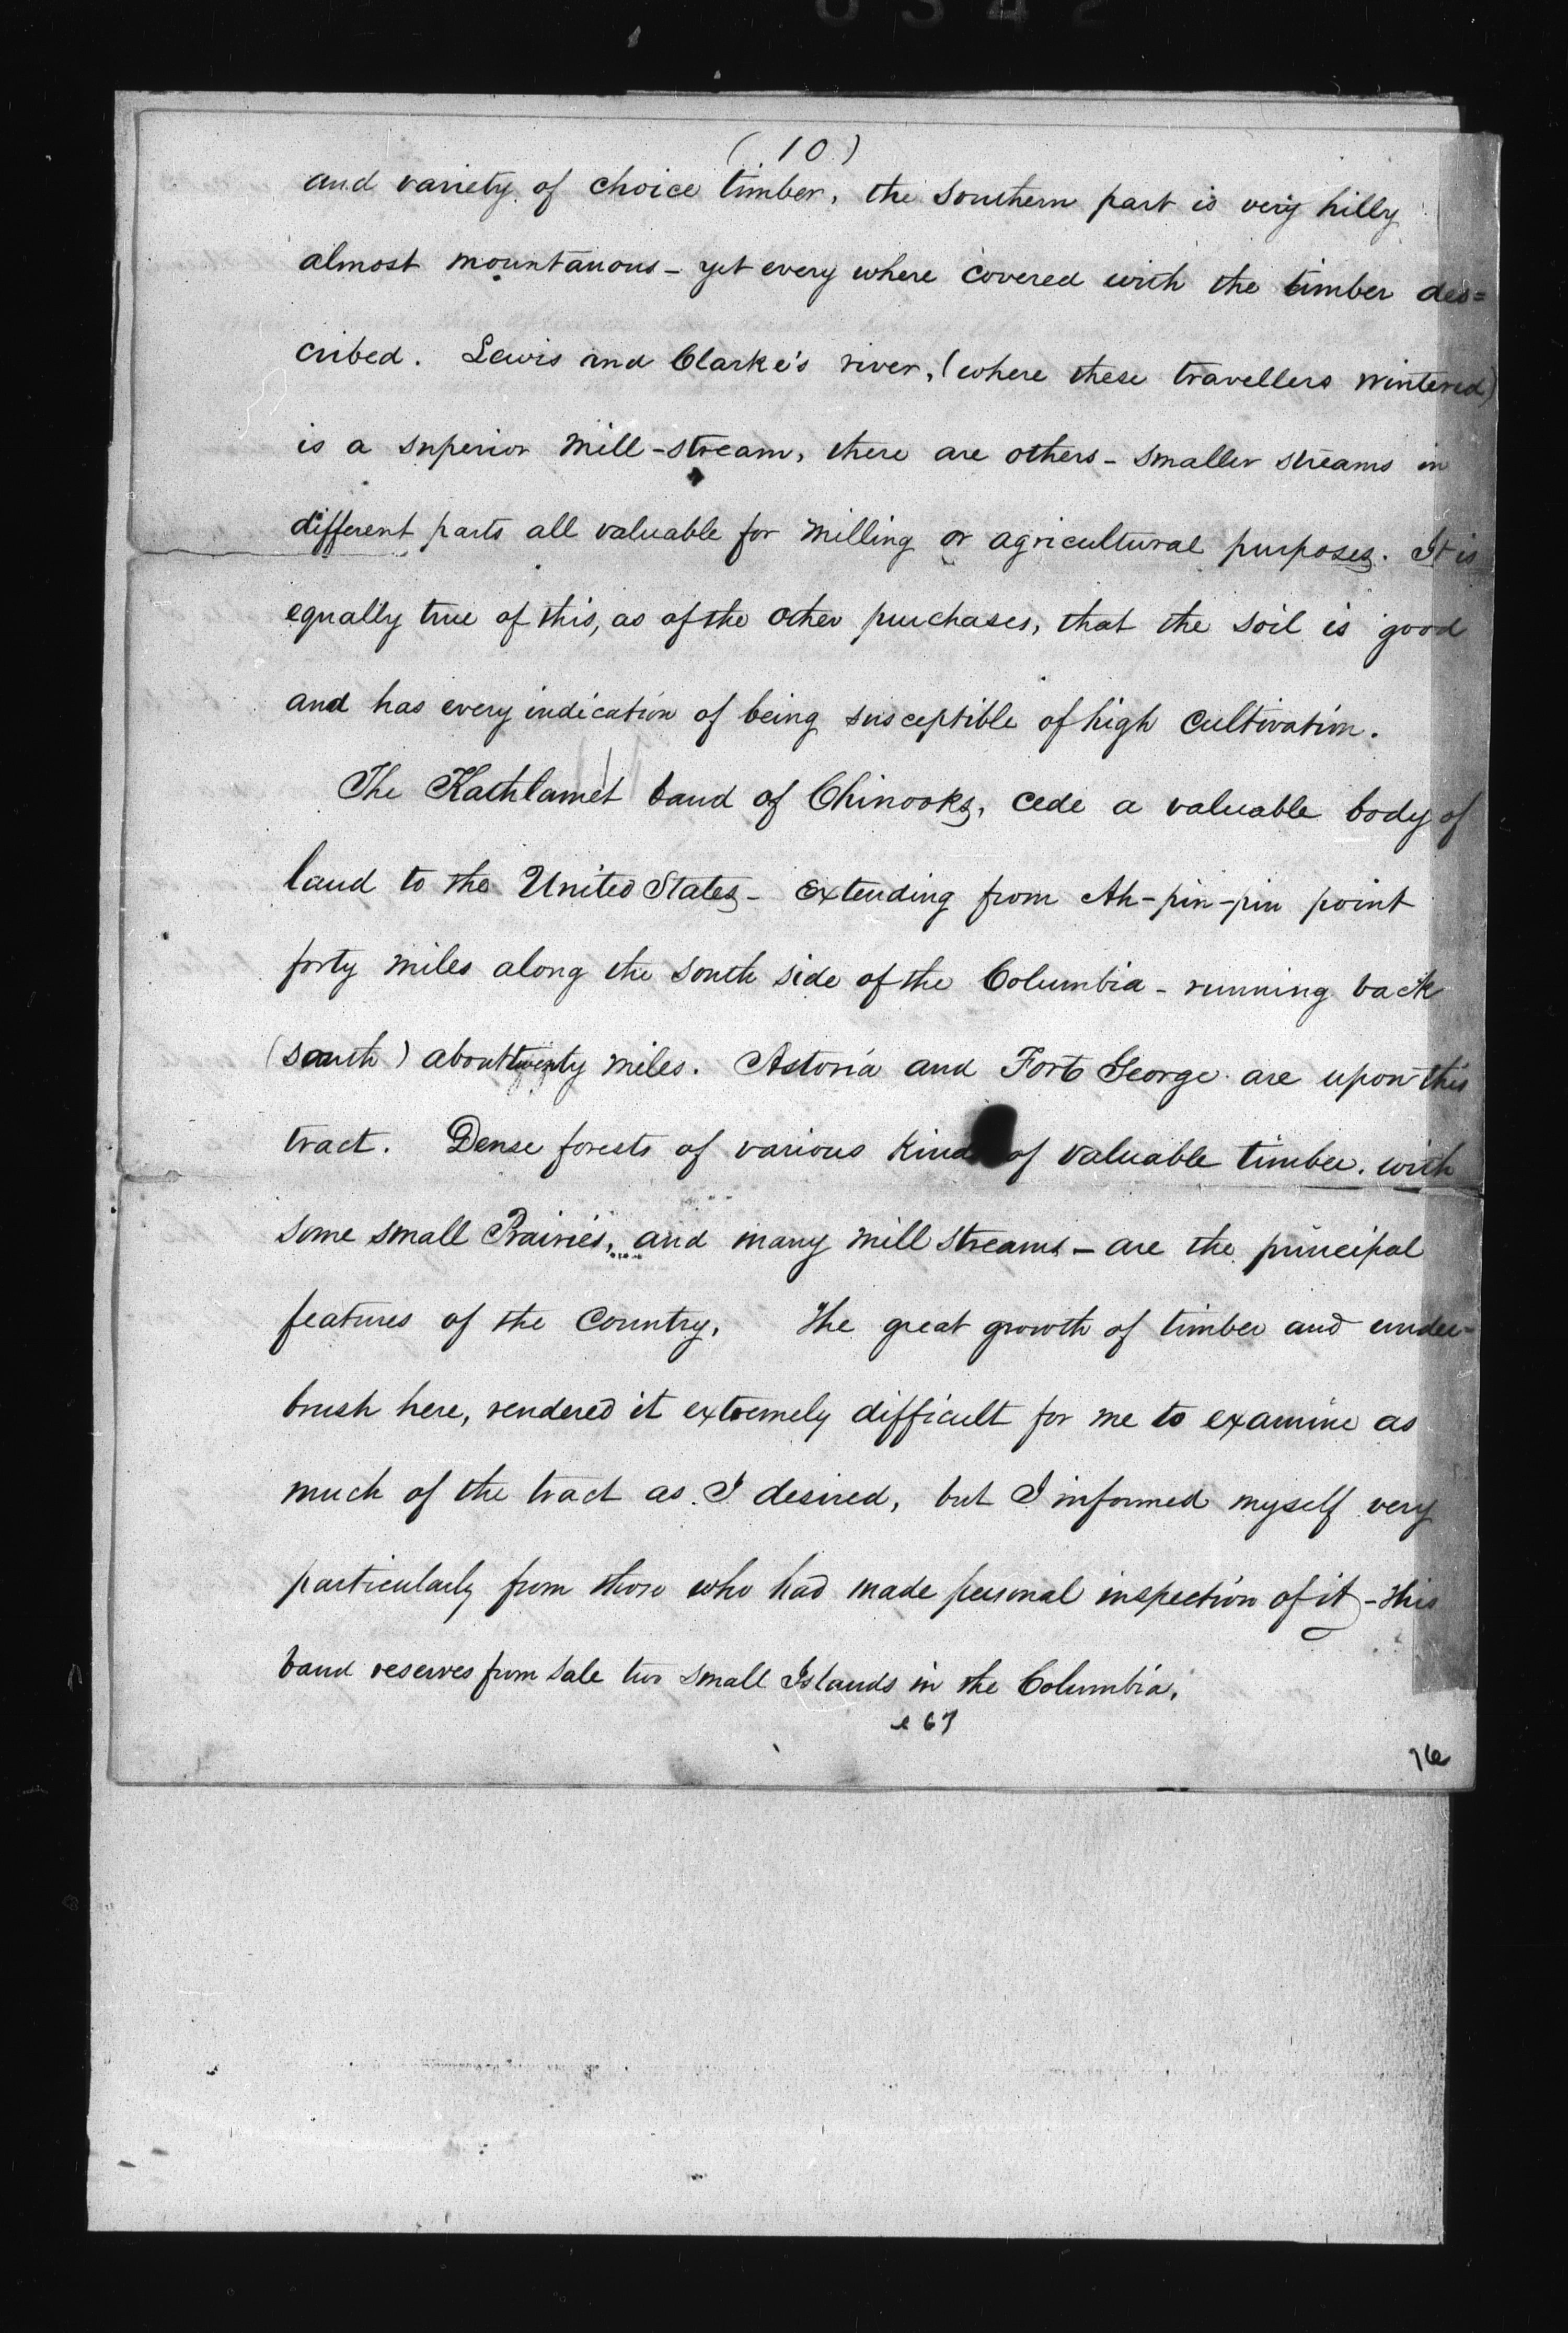 (10)
and variety of choice timber, the Southern part is very hilly
almost mountanous - yet every where covered with the timber des=
cribed. Lewis and Clarke's river, (where these travellers wintered)
is a superior Mill-stream, there are others - smaller streams in
different parts all valuable for Milling or agricultural purposes. It is
equally true of this, as of the other purchases, that the soil is good
and has every indication of being susceptible of high cultivation.
The Kathlamet band of Chinooks, cede a valuable body of
land to the United States - extending from Ah-pin-pin point
forty miles along the south side of the Columbia - running back
(south) about twenty miles. Astoria and Fort George are upon this
tract. Dense forests of various kinds of valuable timber. with
some small Prairies, and many mill streams - are the principal
features of the Country. The great growth of timber and under-
brush here, rendered it extremely difficult for me to examine as
much of the tract as I desired, but I informed myself very
particularly from those who had made personal inspection of it - This
band reserves from sale two small Islands in the Columbia.
e 67